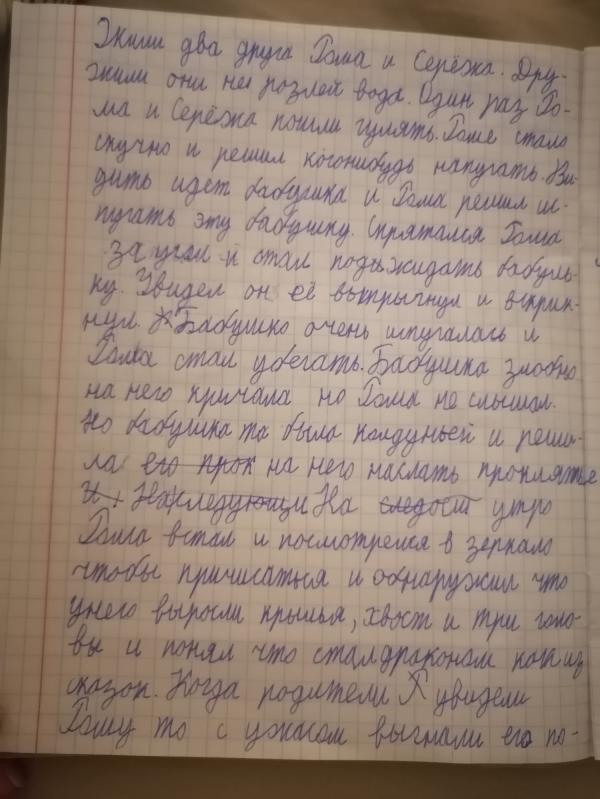 Жили два друга Рома и Серёжа. Дру-
жили они не розлей вода. Один раз Ро-
ма и Серёжа пошли гулять. Роме стало
скучно и решил когонибудь напугать. Ви-
дить идет бабушка и Рома решил ис-
пугать эту бабушку. Спрятался Рома
за угол и стал подъжидать бабуль-
ку. Увидел он её выпрыгнул и вскрик-
нул. Бабушка очень испугалась и
Рома стал убегать. Бабушка злобно
на него кричала но Рома не слышал.
Но бабушка та была колдуньей и реши-
ла его прок на него наслать проклятье
И. Наследующи На следост утро
Рома встал и посмотрелся в зеркало
чтобы причисаться и обнаружил что
унего выросли крылья, хвост и три голо-
вы и понял что сталдраконом как из
сказок. Когда родители увидели
Рому то с ужасом выгнали его по-